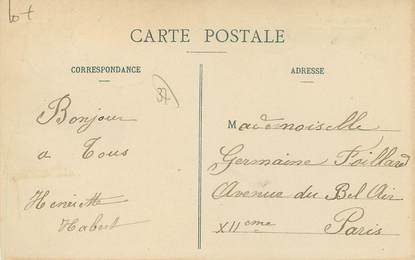 Lot
CARTE POSTALE
CORRESPONDANCE
ADRESSE
37
Bonjour
a Tous
Henriette
Habert
Mademoiselle
Germaine Foillard
Avenue du Bel Air
XIIeme Paris